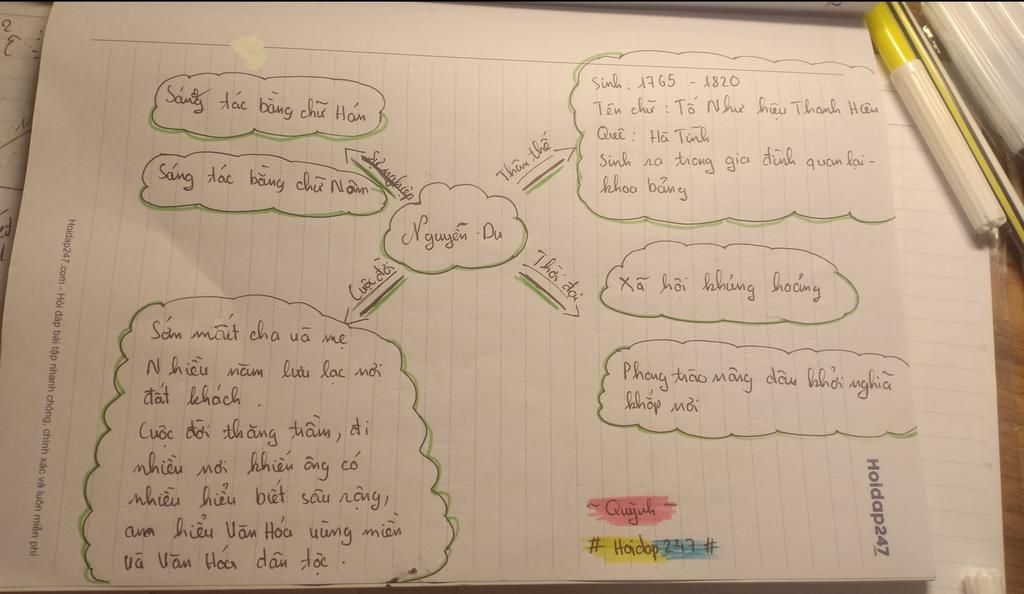 Sáng tác bằng chữ Hán
Sáng tác bằng chữ Nôm
Sự nghiệp
Thân thế
Sinh : 1765 - 1820
Tên chữ : Tố Như hiệu Thanh Hiên
Quê : Hà Tĩnh
Sinh ra trong gia đình quan lại -
khoa bảng
Nguyễn Du
Cuộc đời
Thời đại
Xã hội khủng hoảng
Phong trào nông dân khởi nghĩa
khắp nơi
Sớm mất cha và mẹ
Nhiều năm lưu lạc nơi
đất khách.
Cuộc đời thăng trầm, đi
nhiều nơi khiến ông có
nhiều hiểu biết sâu rộng,
am hiểu Văn Hóa vùng miền
và Văn Hóa dân tộc.
~ Quỳnh ~
# Hoidap 247 #
Hoidap247
Hoidap247.com - Hỏi đáp bài tập nhanh chóng, chính xác và luôn miễn phí